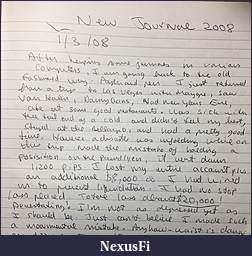 New Journal 2008
1/3/08
After keeping some journals on various
computers, I am going back to the old
fashioned way Pen and pen. I just returned
from a trip to Las Vegas with Maggie, saw
Van Halen, Danny Gans, Had New Years Eve,
ate at some good restaurants. Was sick with
the tail end of a cold and didn't feel my best,
stayed at the Bellagio, and had a pretty good
time. Major advice was unfolding while on
this trip. Made the mistake of holding a
position on the pound/yen, it went down
1,200 pips I lost my entire account plus
an additional $8,000 as I had wired
in to prevent liquidation. I had no stop
loss placed. Total loss about $20,000!
Devastating. I'm not as depressed yet as
I should be. Just can't believe I made such
a monumental mistake. Anyhow - what's is done
NexusFi